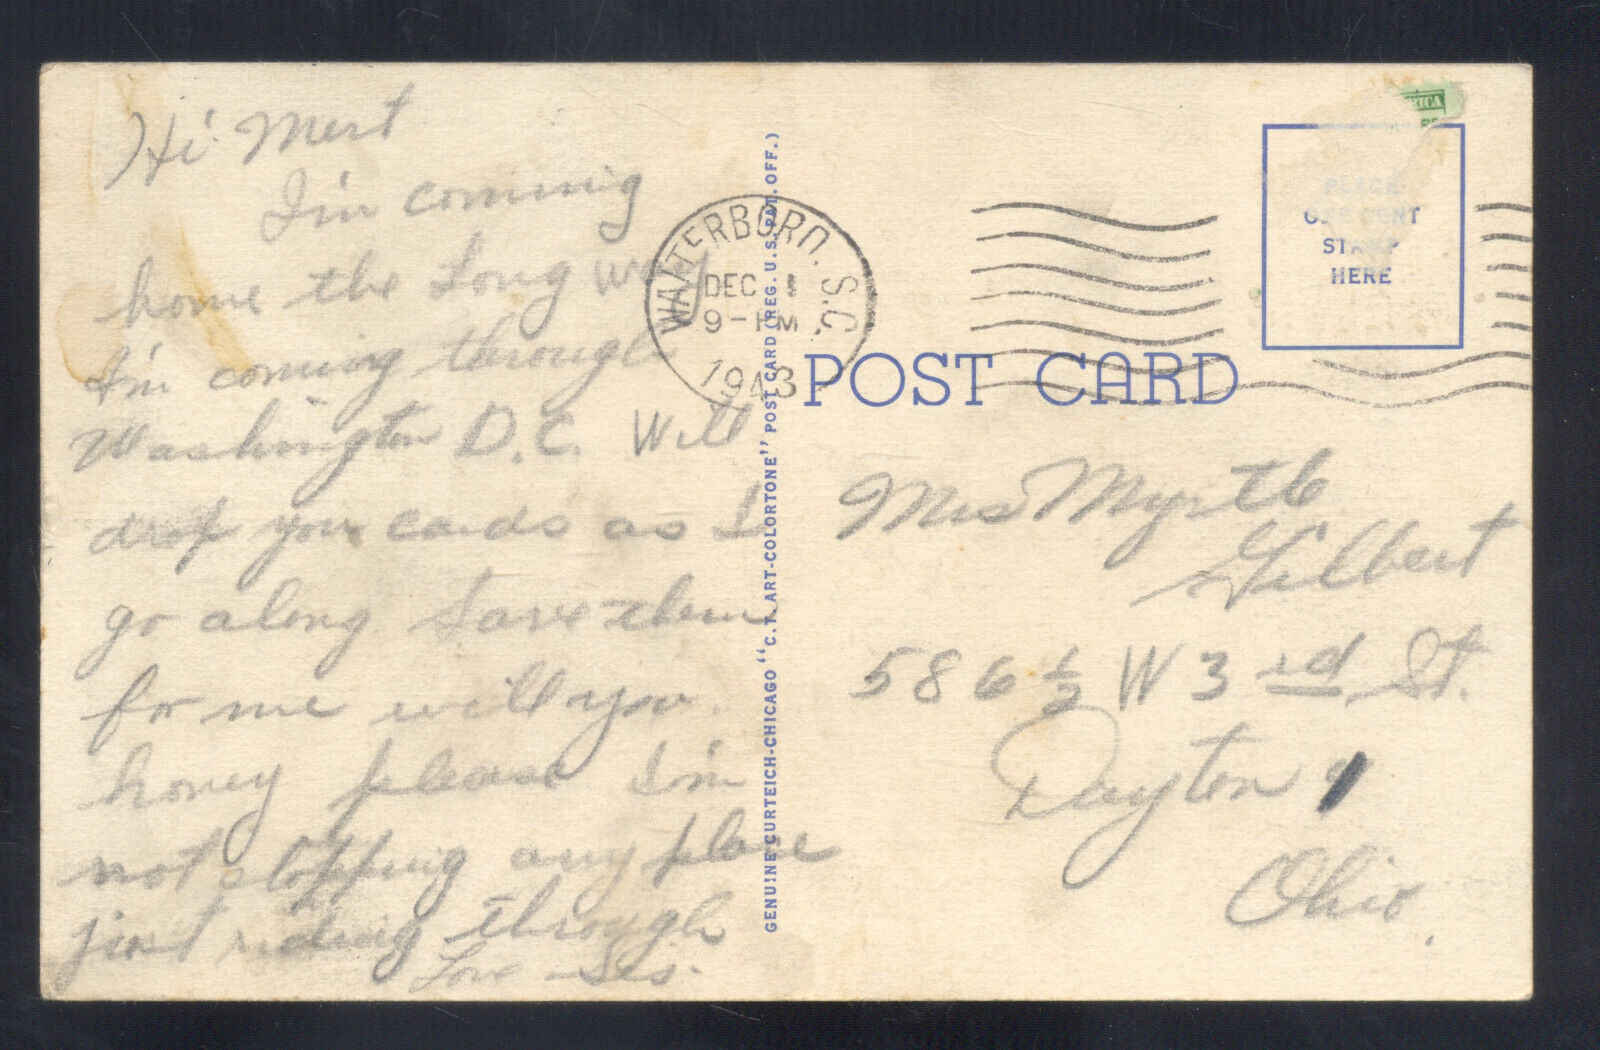 Hi Mert
I'm coming
home the Long way
I'm coming through
Washington D.C. Will
drop you cards as I
go along Save them
for me will you
honey please I'm
not stopping any place
just riding through
Love Sis.
GENUINE CURTEICH-CHICAGO "C.T. ART-COLORTONE" POST CARD (REG. U.S. PAT. OFF.)
WALTERBORO. S.C.
DEC 1
9-PM
1943
RICA
PLACE
ONE CENT
STAMP
HERE
POST CARD
Mrs Myrtle
Gilbert
586 1/2 W 3rd St.
Dayton
Ohio.